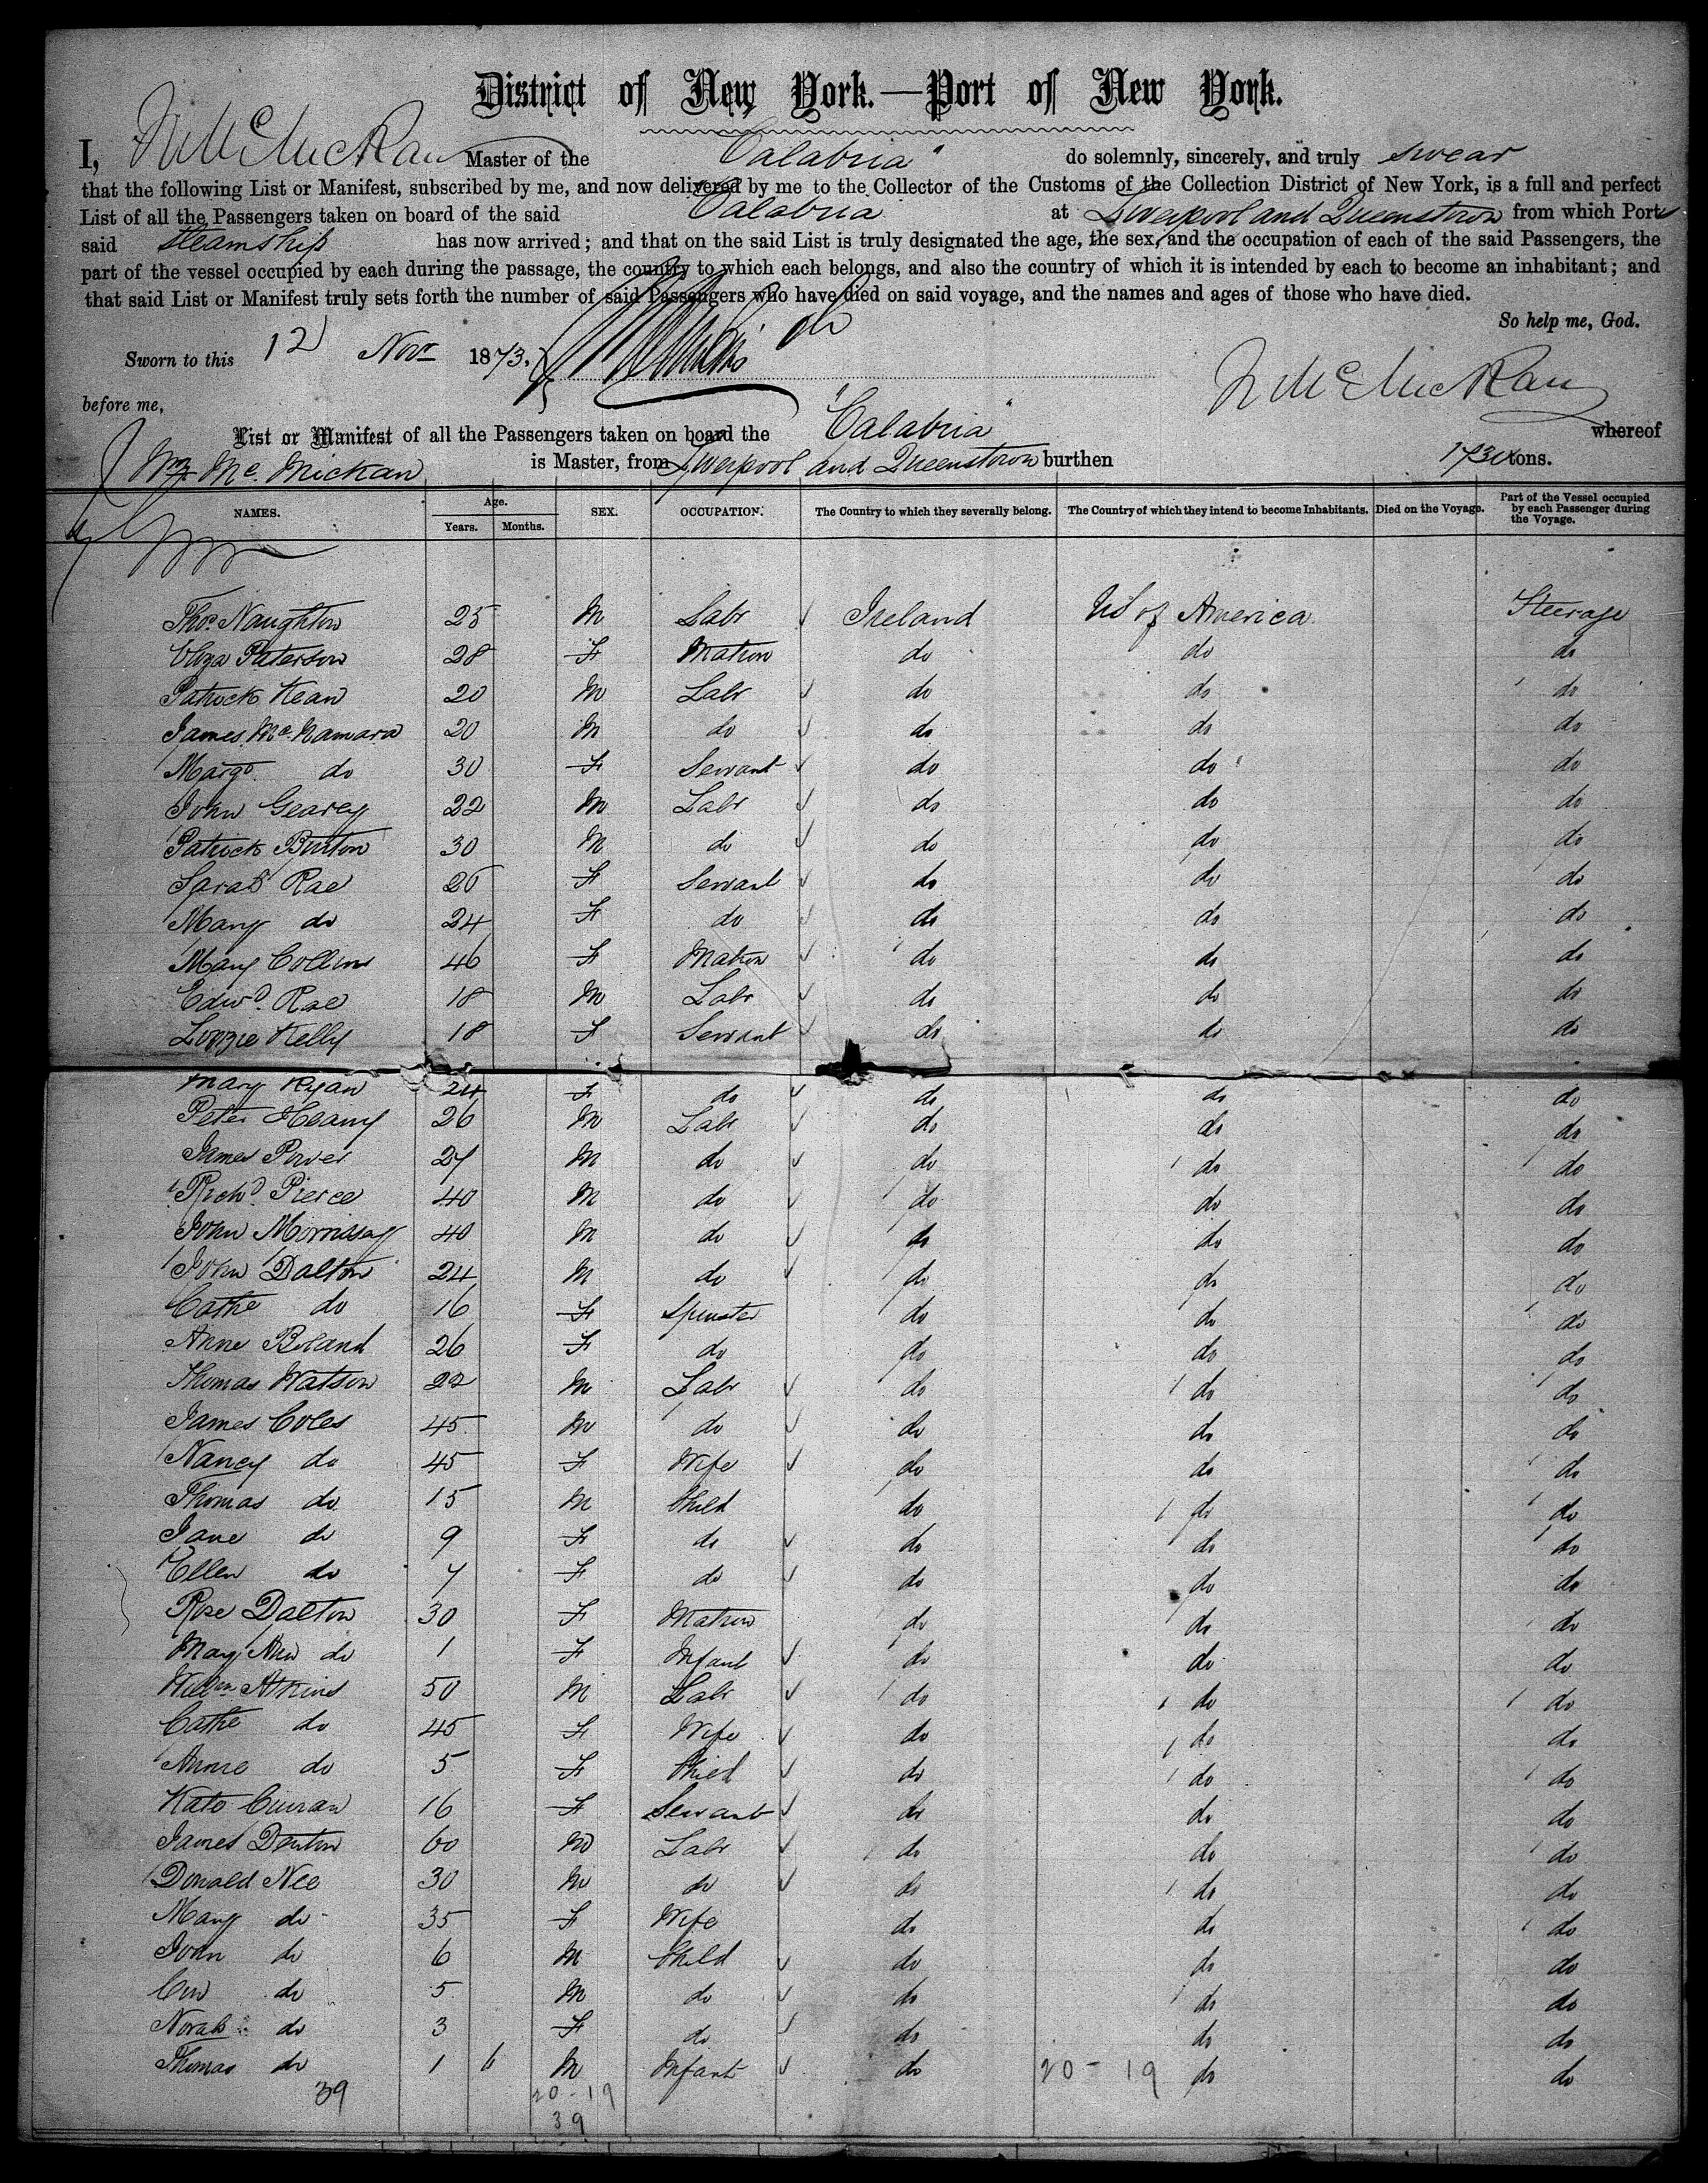 District of New York.—Port of New York.
I, Master of the "Calabria" do solemnly, sincerely, and truly swear
that the following List or Manifest, subscribed by me, and now delivered by me to the Collector of the Customs of the Collection District of New York, is a full and perfect
List of all the Passengers taken on board of the said Calabria at Liverpool and Queenstown from which Ports
said steamship has now arrived; and that on the said List is truly designated the age, the sex, and the occupation of each of the said Passengers, the
part of the vessel occupied by each during the passage, the country to which each belongs, and also the country of which it is intended by each to become an inhabitant; and
that said List or Manifest truly sets forth the number of said Passengers who have died on said voyage, and the names and ages of those who have died.
So help me, God.
Sworn to this 12 Novr 1873.
before me,
List or Manifest of all the Passengers taken on board the "Calabria" whereof
Wm Mc. Mickan is Master, from Liverpool and Queenstown burthen tons.
NAMES. Age. Years. Months. SEX. OCCUPATION. The Country to which they severally belong. The Country of which they intend to become Inhabitants. Died on the Voyage. Part of the Vessel occupied by each Passenger during the Voyage.
Thos. Naughton 25 M Labr Ireland US of America Steerage
Eliza Paterson 28 F Matron do do do
Patrick Kean 20 M Labr do do do
James Mc.Namara 20 M do do do do
Margt. do 30 F Servant do do do
John Gearey 22 M Labr do do do
Patrick Burton 30 M do do do do
Sarah Rae 26 F Servant do do do
Mary do 24 F do do do do
Mary Collins 46 F Matron do do do
Edwd. Rae 18 M Labr do do do
Lizzie Kelly 18 F Servant do do do
Mary Ryan 24 F do do do do
Peter Heany 26 M Labr do do do
James Power 27 M do do do do
Richd. Pierce 40 M do do do do
John Morrissay 40 M do do do do
John Dalton 24 M do do do do
Cathe do 16 F Spinster do do do
Anne Boland 26 F do do do do
Thomas Watson 22 M Labr do do do
James Coles 45 M do do do do
Nancy do 45 F Wife do do do
Thomas do 15 M Child do do do
Jane do 9 F do do do do
Ellen do 7 F do do do do
Rose Dalton 30 F Matron do do do
Mary Ann do 1 F Infant do do do
Willm. Atkins 50 M Labr do do do
Cathe do 45 F Wife do do do
Annie do 5 F Child do do do
Kate Curran 16 F Servant do do do
James Denton 60 M Labr do do do
Donald Nee 30 M do do do do
Mary do 35 F Wife do do do
John do 6 M Child do do do
do 5 M do do do do
Norah do 3 F do do do do
Thomas do 1 6 M Infant do 20 - 19 do do
39 20 - 19
39